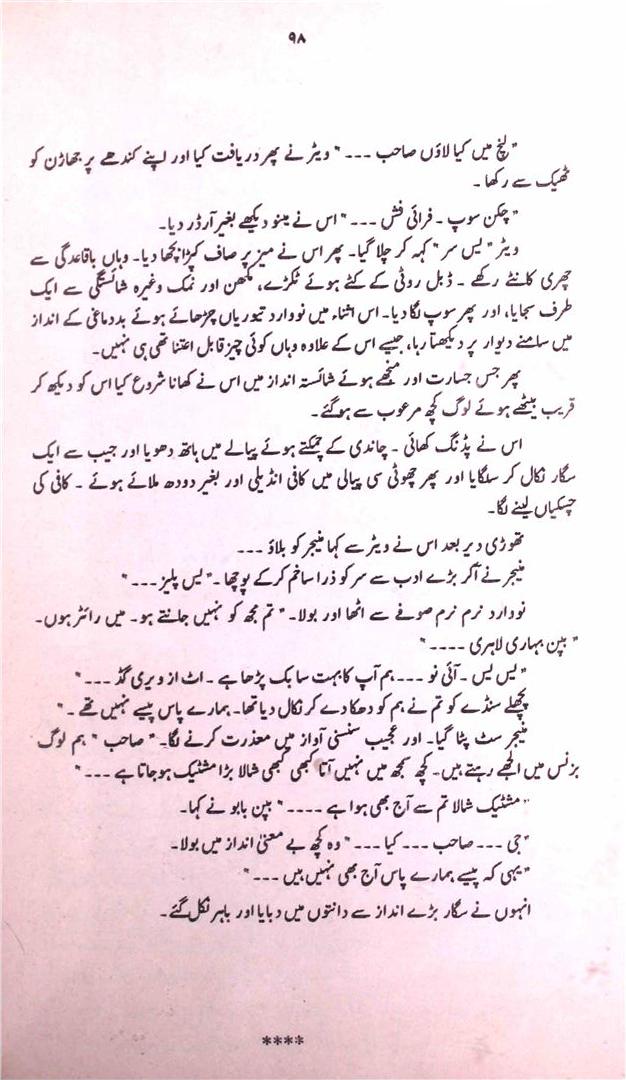 ۹۸
"لنچ میں کیا لاؤں صاحب ۔۔۔" ویٹر نے پھر دریافت کیا اور اپنے کندھے پر جھاڑن کو
ٹھیک سے رکھا ۔
"چکن سوپ ۔ فرائی فش ۔۔۔" اس نے مینو دیکھے بغیر آرڈر دیا۔
ویٹر "یس سر" کہہ کر چلا گیا۔ پھر اس نے میز پر صاف کپڑا بچھا دیا۔ وہاں باقاعدگی سے
چھری کانٹے رکھے ۔ ڈبل روٹی کے کٹے ہوئے ٹکڑے، مکھن اور نمک وغیرہ شائستگی سے ایک
طرف سجایا، اور پھر سوپ لگا دیا۔ اس اثناء میں نووارد تیوریاں چڑھائے ہوئے بددماغی کے انداز
میں سامنے دیوار پر دیکھتا رہا، جیسے اس کے علاوہ وہاں کوئی چیز قابل اعتنا تھی ہی نہیں۔
پھر جس جسارت اور منجھے ہوئے شائستہ انداز میں اس نے کھانا شروع کیا اس کو دیکھ کر
قریب بیٹھے ہوئے لوگ کچھ مرعوب سے ہوگئے۔
اس نے پڈنگ کھائی ۔ چاندی کے چمکتے ہوئے پیالے میں ہاتھ دھویا اور جیب سے ایک
سگار نکال کر سلگایا اور پھر چھوٹی سی پیالی میں کافی انڈیلی اور بغیر دودھ ملائے ہوئے ۔ کافی کی
چسکیاں لینے لگا۔
تھوڑی دیر بعد اس نے ویٹر سے کہا منیجر کو بلاؤ ۔۔۔
منیجر نے آکر بڑے ادب سے سر کو ذرا سا خم کرکے پوچھا ۔ "یس پلیز ۔۔۔"
نووارد نرم نرم صوفے سے اٹھا اور بولا۔ "تم مجھ کو نہیں جانتے ہو۔ میں رائٹر ہوں۔
"بپن بہاری لاہری ۔۔۔۔"
"یس یس ۔ آئی نو ۔۔۔ ہم آپ کا بہت سا بک پڑھا ہے ۔ اٹ از ویری گڈ ۔۔۔"
پچھلے سنڈے کو تم نے ہم کو دھکا دے کر نکال دیا تھا۔ ہمارے پاس پیسے نہیں تھے ۔"
منیجر سٹ پٹا گیا۔ اور عجیب سنسنی آواز میں معذرت کرنے لگا۔ "صاحب" ہم لوگ
بزنس میں الجھے رہتے ہیں۔ کچھ سمجھ میں نہیں آتا کبھی کبھی شالا بڑا مشٹیک ہوجاتا ہے ۔۔۔"
"مشٹیک شالا تم سے آج بھی ہوا ہے ۔۔۔۔" بپن بابو نے کہا۔
"جی ۔۔۔ صاحب ۔۔۔ کیا ۔۔۔" وہ کچھ بے معنیٰ انداز میں بولا۔
"یہی کہ پیسے ہمارے پاس آج بھی نہیں ہیں ۔۔۔"
انہوں نے سگار بڑے انداز سے دانتوں میں دبایا اور باہر نکل گئے۔
****